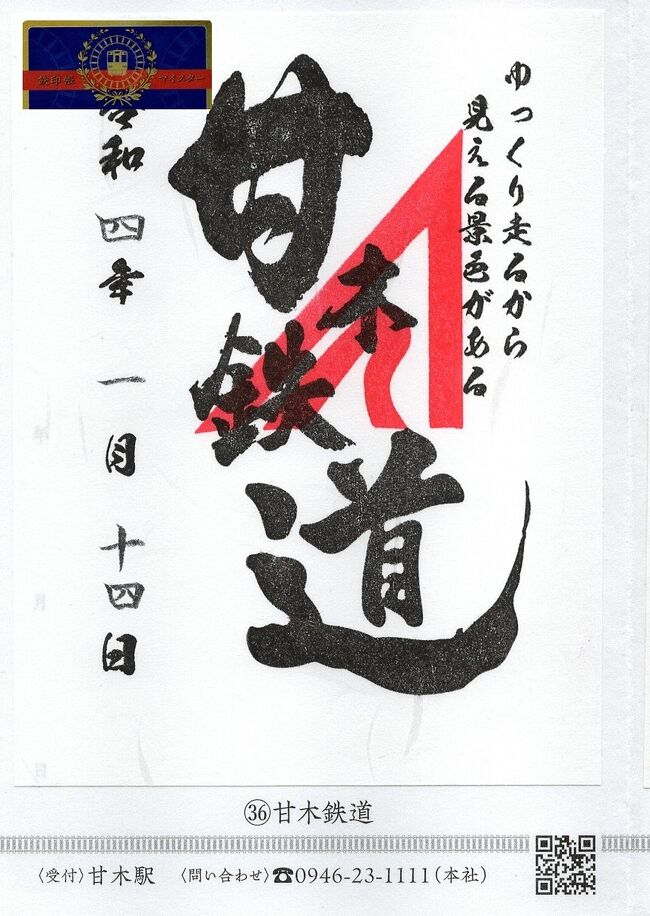 鉄印帳 マイスター
ゆっくり走るから
見える景色がある
甘木鉄道
令和 四年 一月 十四日
㊱甘木鉄道
〈受付〉甘木駅 〈問い合わせ〉☎0946-23-1111(本社)